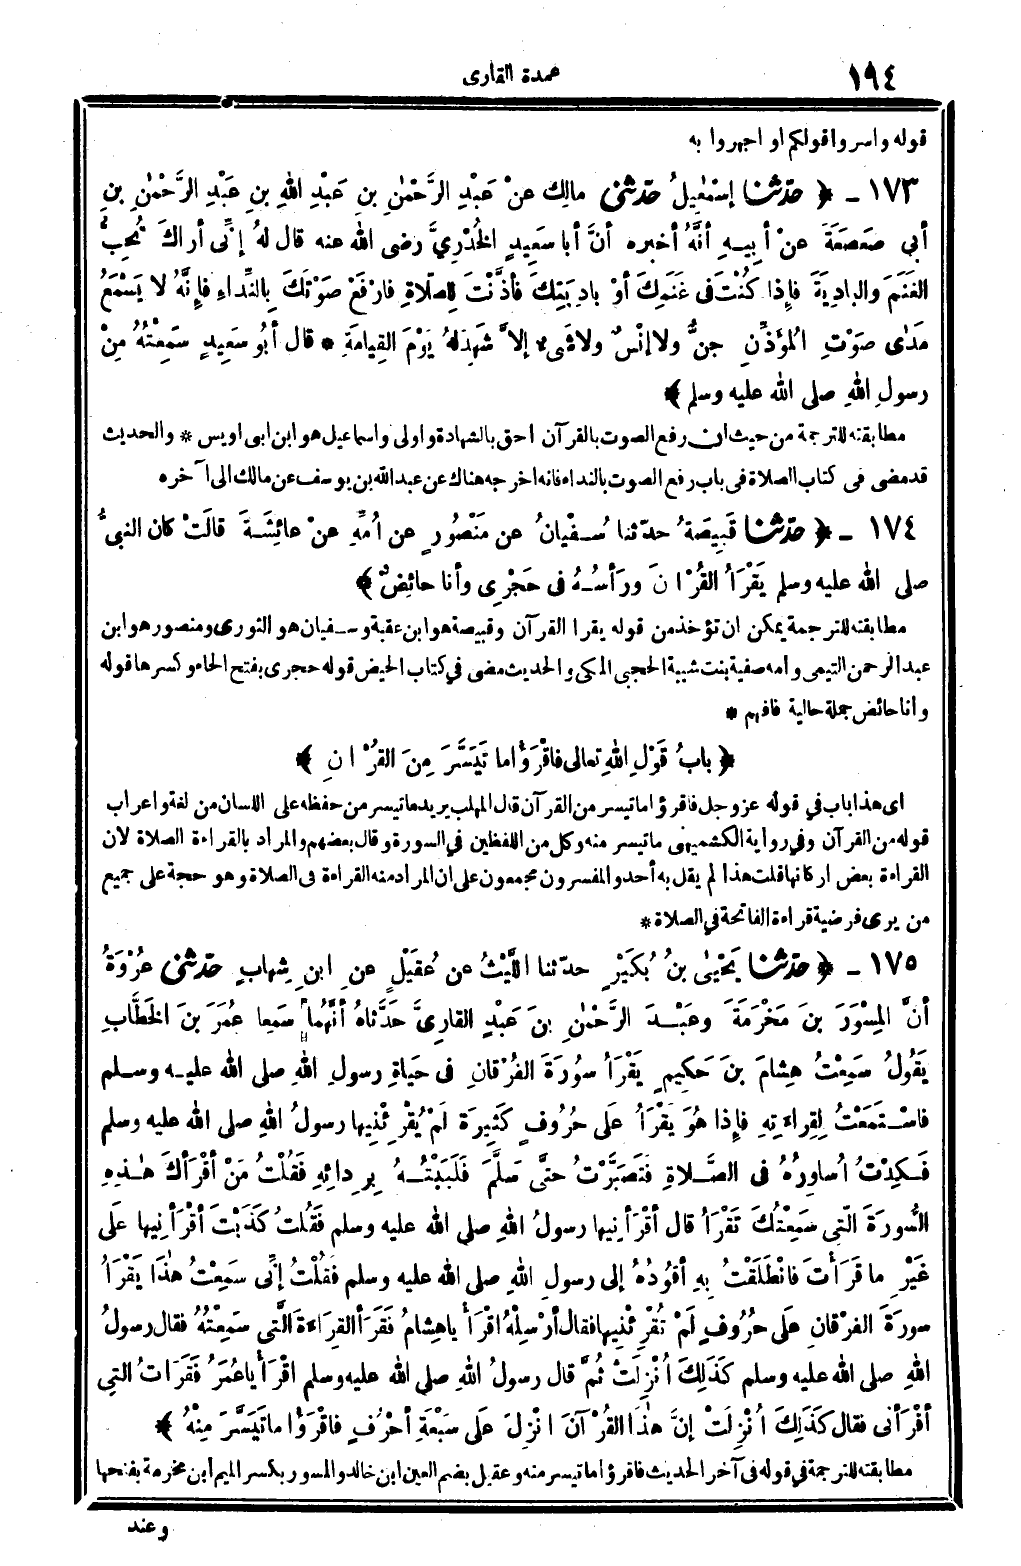 ١٩٤
عمدة القارى
قوله واسروا قولكم او اجهروا به
١٧٣ - ﴿ حدّثنا إسْمٰعِيلُ حدّثنى مالِك عنْ عَبْدِ الرَّحْمٰنِ بنِ عَبْدِ اللهِ بنِ عَبْدِ الرَّحْمٰنِ بنِ
أبي صَعْصَعَةَ عنْ أبيهِ أنَّهُ أخبره أنَّ أبا سَعِيدٍ الخُدْرِيَّ رضى الله عنه قال لهُ إنِّى أراكَ تُحِبُّ
الغَنَمَ والبادِيَةَ فإذا كُنْتَ فى غَنَمِكَ أوْ بادِيَتِكَ فأذَّنْتَ للصّلاةِ فارْفَعْ صَوْتَكَ بالنِّداءِ فإنَّهُ لا يَسْمَعُ
مَدَى صَوْتِ المُؤَذِّنِ جنٌّ ولا إنْسٌ ولا شَىء إلاَّ شَهِدَ لهُ يَوْمَ القِيامَةِ * قال أبُو سَعِيدٍ سَمِعْتُهُ مِنْ
رسولِ اللهِ صلى الله عليه وسلم ﴾
مطابقته للترجمة من حيث ان رفع الصوت بالقرآن احق بالشهادة واولى واسماعيل هو ابن ابى اويس * والحديث
قد مضى فى كتاب الصلاة فى باب رفع الصوت بالنداء فانه اخرجه هناك عن عبد الله بن يوسف عن مالك الى آخره
١٧٤ - ﴿ حدّثنا قَبِيصَةُ حدّثنا سُفْيانُ عن مَنْصُورٍ عن أُمِّهِ عنْ عائِشَةَ قالَتْ كان النبىُّ
صلى الله عليه وسلم يَقْرَأُ القُرْآنَ ورَأسُهُ فى حَجْرِى وأنا حائِضٌ ﴾
مطابقته للترجمة يمكن ان تؤخذ من قوله يقرا القرآن وقبيصة هو ابن عقبة وسفيان هو الثورى ومنصور هو ابن
عبد الرحمن التيمى وامه صفية بنت شيبة الحجبي المكى والحديث مضى في كتاب الحيض قوله حجرى بفتح الحاء وكسرها قوله
وانا حائض جملة حالية فافهم *
﴿ بابُ قَوْلِ اللهِ تعالى فاقْرَؤا ما تَيَسَّرَ مِنَ القُرْآنِ ﴾
اى هذا باب في قوله عز وجل فاقرؤا ما تيسر من القرآن قال المهلب يريد ما تيسر من حفظه على اللسان من لغة واعراب
قوله من القرآن وفي رواية الكشميهنى ما تيسر منه وكل من اللفظين في السورة وقال بعضهم والمراد بالقراءة الصلاة لان
القراءة بعض اركانها قلت هذا لم يقل به أحد والمفسرون مجمعون على ان المراد منه القراءة فى الصلاة وهو حجة على جميع
من يرى فرضية قراءة الفاتحة في الصلاة *
١٧٥ - ﴿ حدّثنا يَحْيٰى بنُ بُكَيْرٍ حدّثنا اللَّيْثُ عن عُقَيْلٍ عن ابنِ شِهابٍ حدّثنى عُرْوَةُ
أنَّ المِسْوَرَ بنَ مَخْرَمَةَ وعَبْدَ الرَّحْمٰنِ بنَ عَبْدٍ القارِىَّ حَدَّثاهُ أنَّهُما سَمِعا عُمَرَ بنَ الخَطَّابِ
يَقُولُ سَمِعْتُ هِشامَ بنَ حَكِيمٍ يَقْرَأُ سُورَةَ الفُرْقانِ فى حَياةِ رسولِ اللهِ صلى الله عليه وسلم
فاسْتَمَعْتُ لِقِراءَتِهِ فإذا هُوَ يَقْرَأُ عَلَى حُرُوفٍ كَثِيرَة لَمْ يُقْرِئْنِيها رسولُ اللهِ صلى الله عليه وسلم
فَكِدْتُ أُساوِرُهُ فى الصَّلاةِ فَتَصَبَّرْتُ حتَّى سَلَّمَ فَلَبَبْتُهُ بِرِدائِهِ فَقُلْتُ مَنْ أقْرَأكَ هٰذِهِ
السُّورَةَ الَّتِي سَمِعْتُكَ تَقْرَأُ قال أقْرَأنِيها رسولُ اللهِ صلى الله عليه وسلم فَقُلْتُ كَذَبْتَ أقْرَأنِيها عَلَى
غَيْرِ ما قَرَأتَ فانْطَلَقْتُ بِهِ أقُودُهُ إلى رسولِ اللهِ صلى الله عليه وسلم فَقُلْتُ إنِّى سَمِعْتُ هٰذَا يَقْرَأُ
سورَةَ الفرْقانِ عَلَى حُرُوفٍ لَمْ تُقْرِئْنِيها فقال أرْسِلْهُ اقْرَأْ ياهِشامُ فَقَرَأ القِرَاءَةَ الَّتِي سَمِعْتُهُ فقال رسولُ
اللهِ صلى الله عليه وسلم كَذَلِكَ أُنْزِلَتْ ثُمَّ قال رسولُ اللهِ صلى الله عليه وسلم اقْرَأْ ياعُمَرُ فَقَرَأتُ التِي
أقْرَأنى فقال كَذَلِكَ أُنْزِلَتْ إنَّ هٰذا القُرْآنَ أُنْزِلَ عَلَى سَبْعَةِ أحْرُفٍ فاقْرَؤُا ما تَيَسَّرَ مِنْهُ ﴾
مطابقته للترجمة في قوله فى آخر الحديث فاقرؤا ما تيسر منه وعقيل بضم العين ابن خالد والمسور بكسر الميم ابن مخرمة بفتحها
وعند